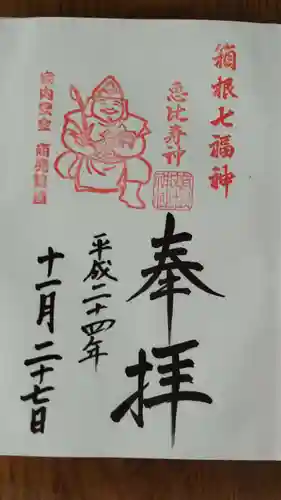 箱根七福神
恵比寿神
家内安全
奉拝
平成二十四年
十一月二十七日